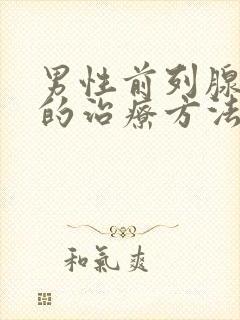 男性前列腺
的治療方法
和氣爽